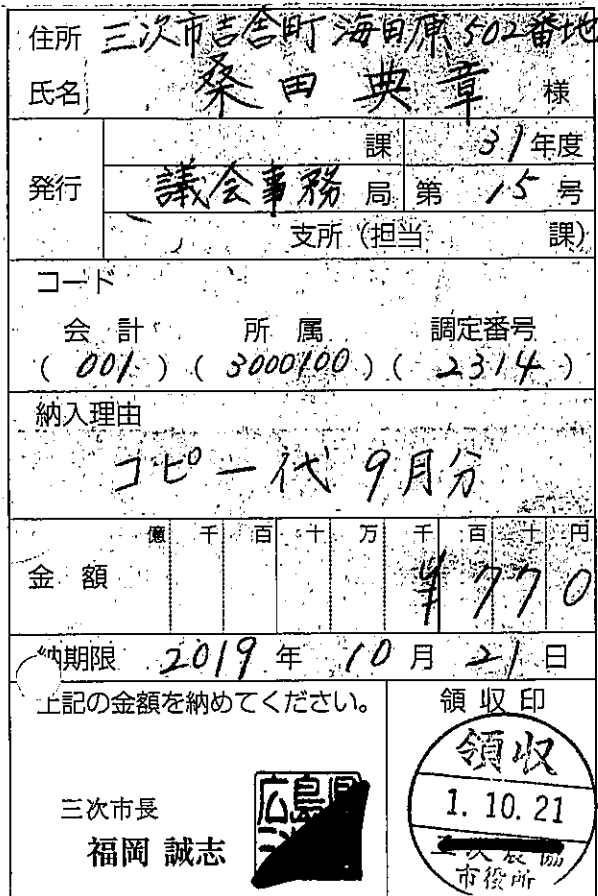 住所 三次市吉舎町海田原502番地
氏名 桑田典章 様
発行
課 31年度
議会事務局 第15号
支所（担当 課）
コード
会計 所属 調定番号
（001）（3000100）（2314）
納入理由
コピー代 9月分
億 千 百 十 万 千 百 十 円
金額 ¥770
納期限 2019年10月21日
上記の金額を納めてください。
領収印
三次市長
福岡 誠志
広島県
領収
1.10.21
市役所